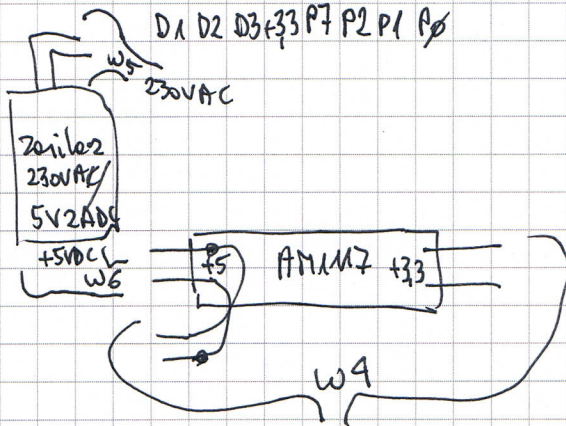 D1 D2 D3 +3,3 P7 P2 P1 P0
W5
230VAC
Zasilacz
230VAC/
5V2ADC
+5VDC
W6
+5 AM1117 +3,3
W4